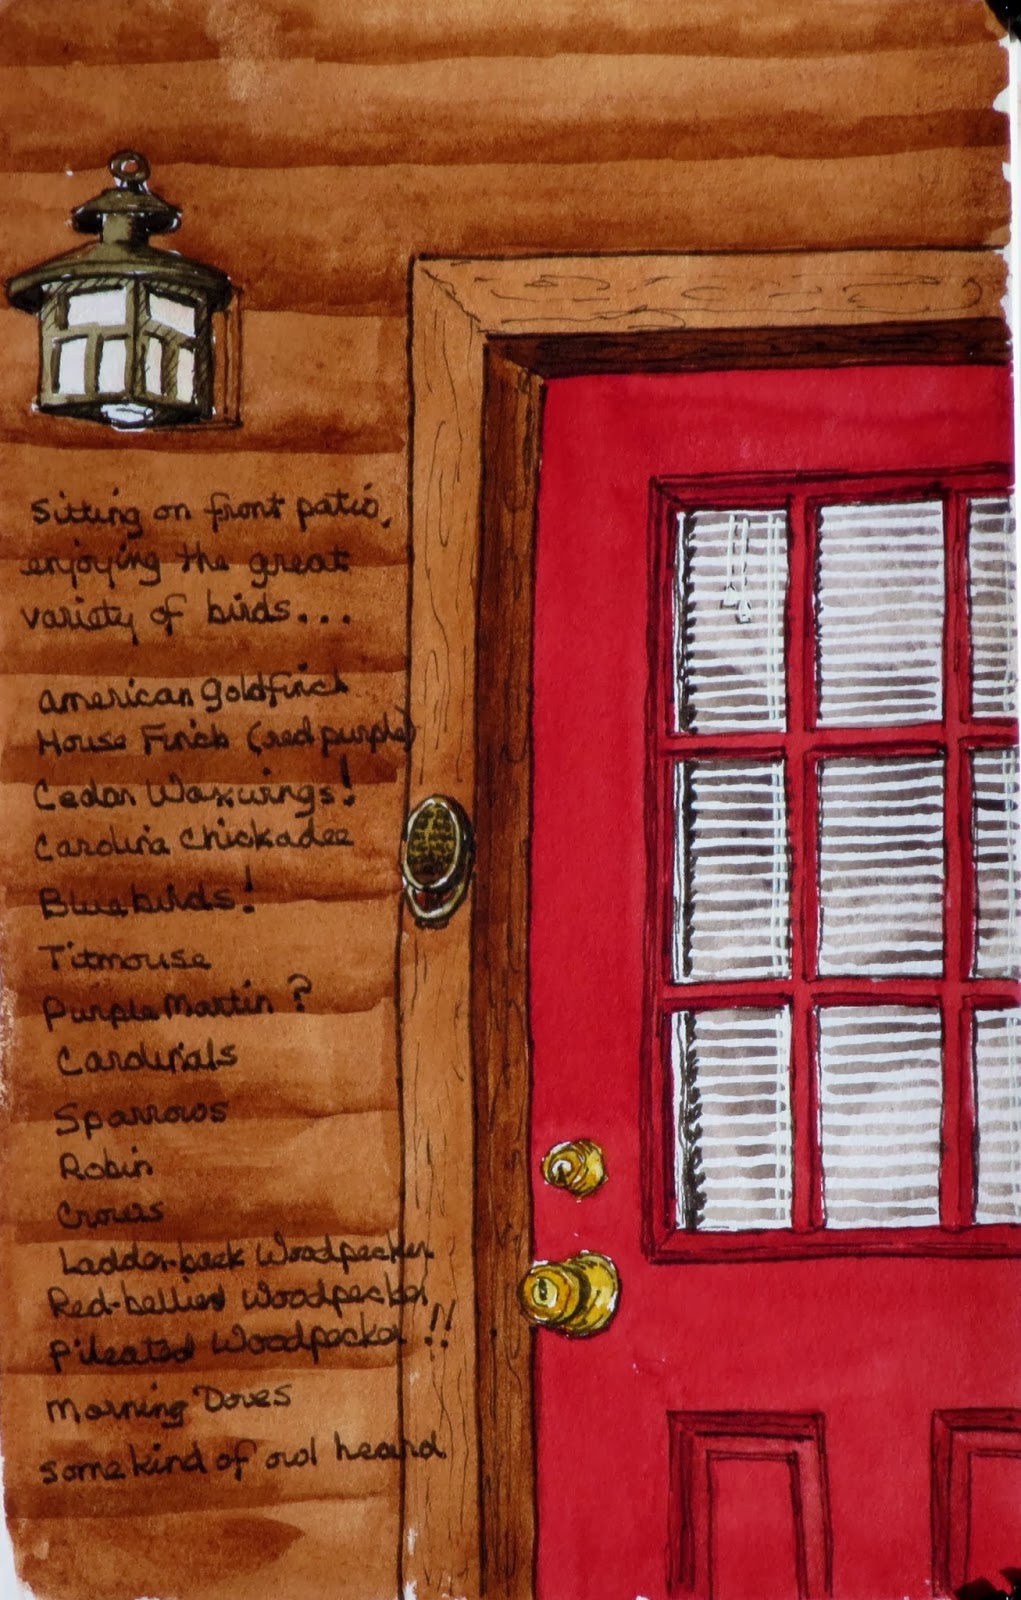 Sitting on front patio,
enjoying the great
variety of birds...
American Goldfinch
House Finch (red purple)
Cedar Waxwings!
Carolina Chickadee
Bluebirds!
Titmouse
Purple Martin?
Cardinals
Sparrows
Robin
Crows
Ladder-back Woodpecker
Red-bellied Woodpecker
Pileated Woodpecker!!
Morning Doves
some kind of owl heard